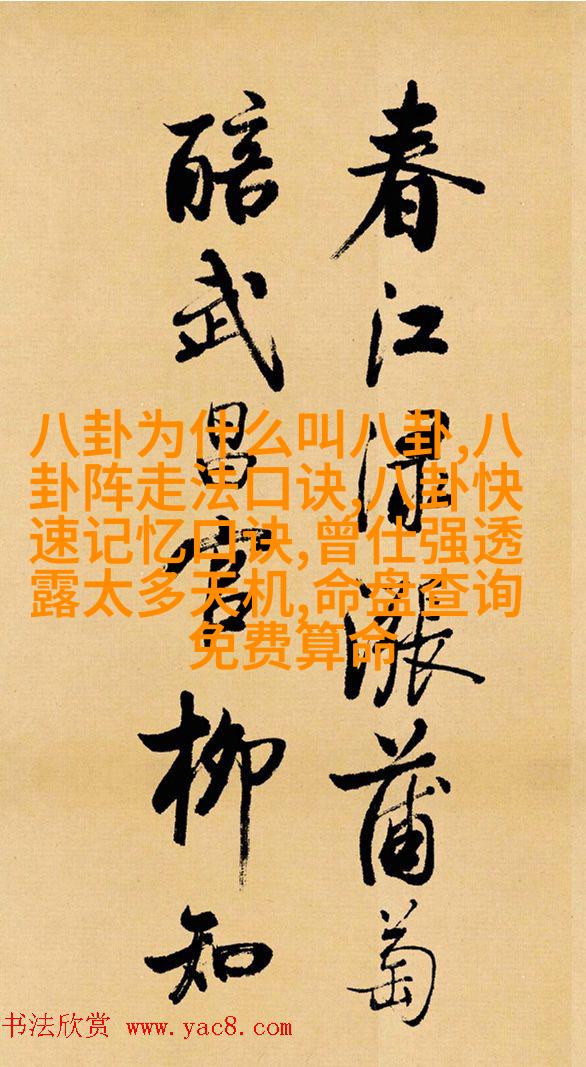 春江渌涨蒲萄
醅武昌官柳知
八卦为什么叫八卦,八
卦阵走法口诀,八卦快
速记忆口诀,曾仕强透
露太多天机,命盘查询
免费算命
书法欣赏 www.yac8.com